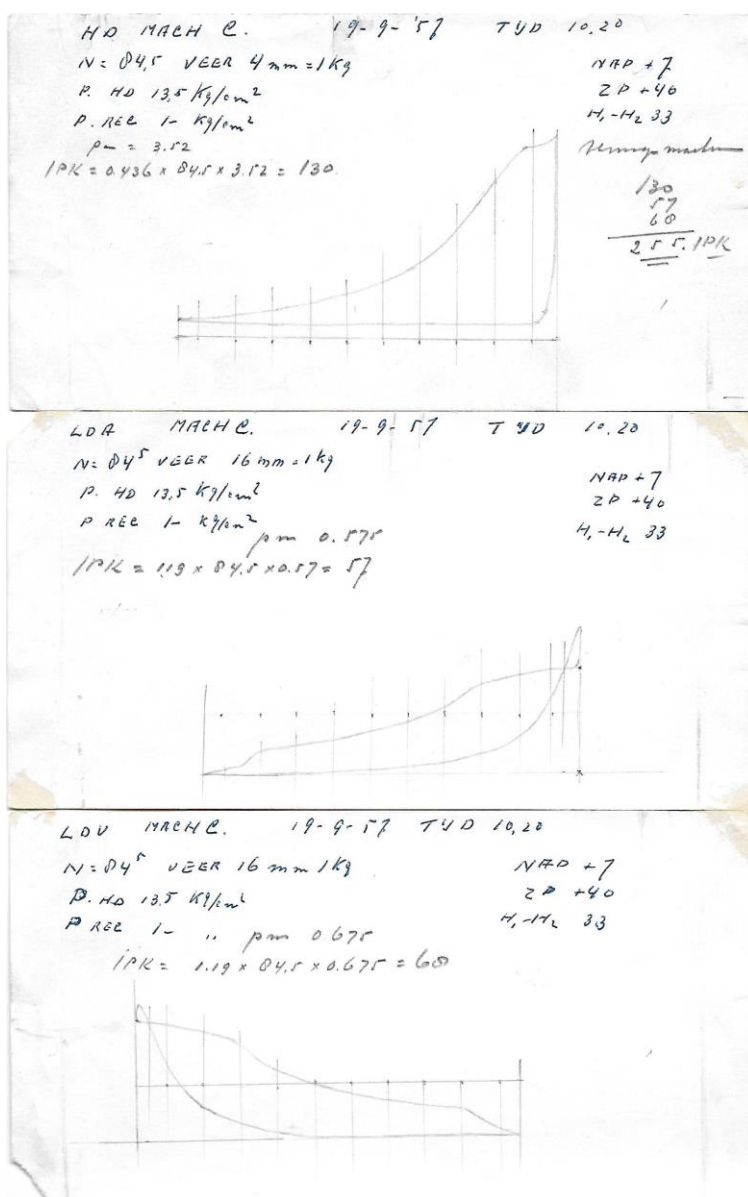 HD MACH C. 19-9-'57 TYD 10.20
N = 84,5 VEER 4 mm = 1 Kg
P. HD 13,5 Kg/cm²
P. REC 1- Kg/cm²
pm = 3.52
IPK = 0.436 x 84.5 x 3.52 = 130.
NAP +7
ZP +40
H₁-H₂ 33
130
57
68
255. IPK
LDA MACH C. 19-9-57 TYD 10.20
N = 84⁵ VEER 16 mm = 1 kg
P. HD 13,5 Kg/cm²
P REC 1- Kg/cm²
pm 0.575
IPK = 1.19 x 84.5 x 0.57 = 57
NAP +7
ZP +40
H₁-H₂ 33
LDV MACH C. 19-9-57 TYD 10,20
N = 84⁵ VEER 16 mm 1 Kg
P. HD 13.5 Kg/cm²
P REC 1- " pm 0.675
IPK = 1.19 x 84.5 x 0.675 = 68
NAP +7
ZP +40
H₁-H₂ 33